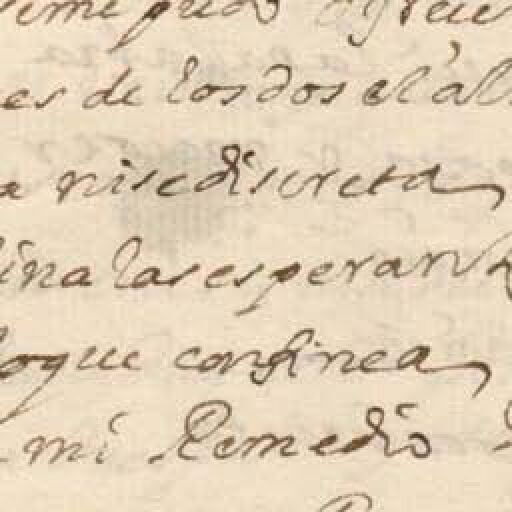 es de los dos el al
a ni se discreta
ina las esperan
loque confinea
mi Remedio